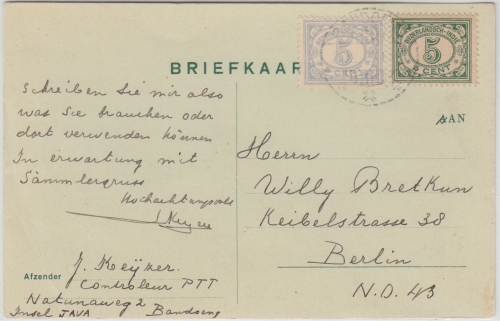 BRIEFKAAR
5
NEDERLANDSCH-INDIE
5
5 CENT
Schreiben Sie mir also
was Sie brauchen oder
dort verwenden können
In erwartung mit
Sämmlergruss
Hochachtungsvoll
J Keyzer
AAN
Herrn
Willy Bretkun
Keibelstrasse 38
Berlin
N.O. 43
Afzender
J. Keÿzer.
Controleur PTT
Natunaweg 2
Insel JAVA Bandoeng